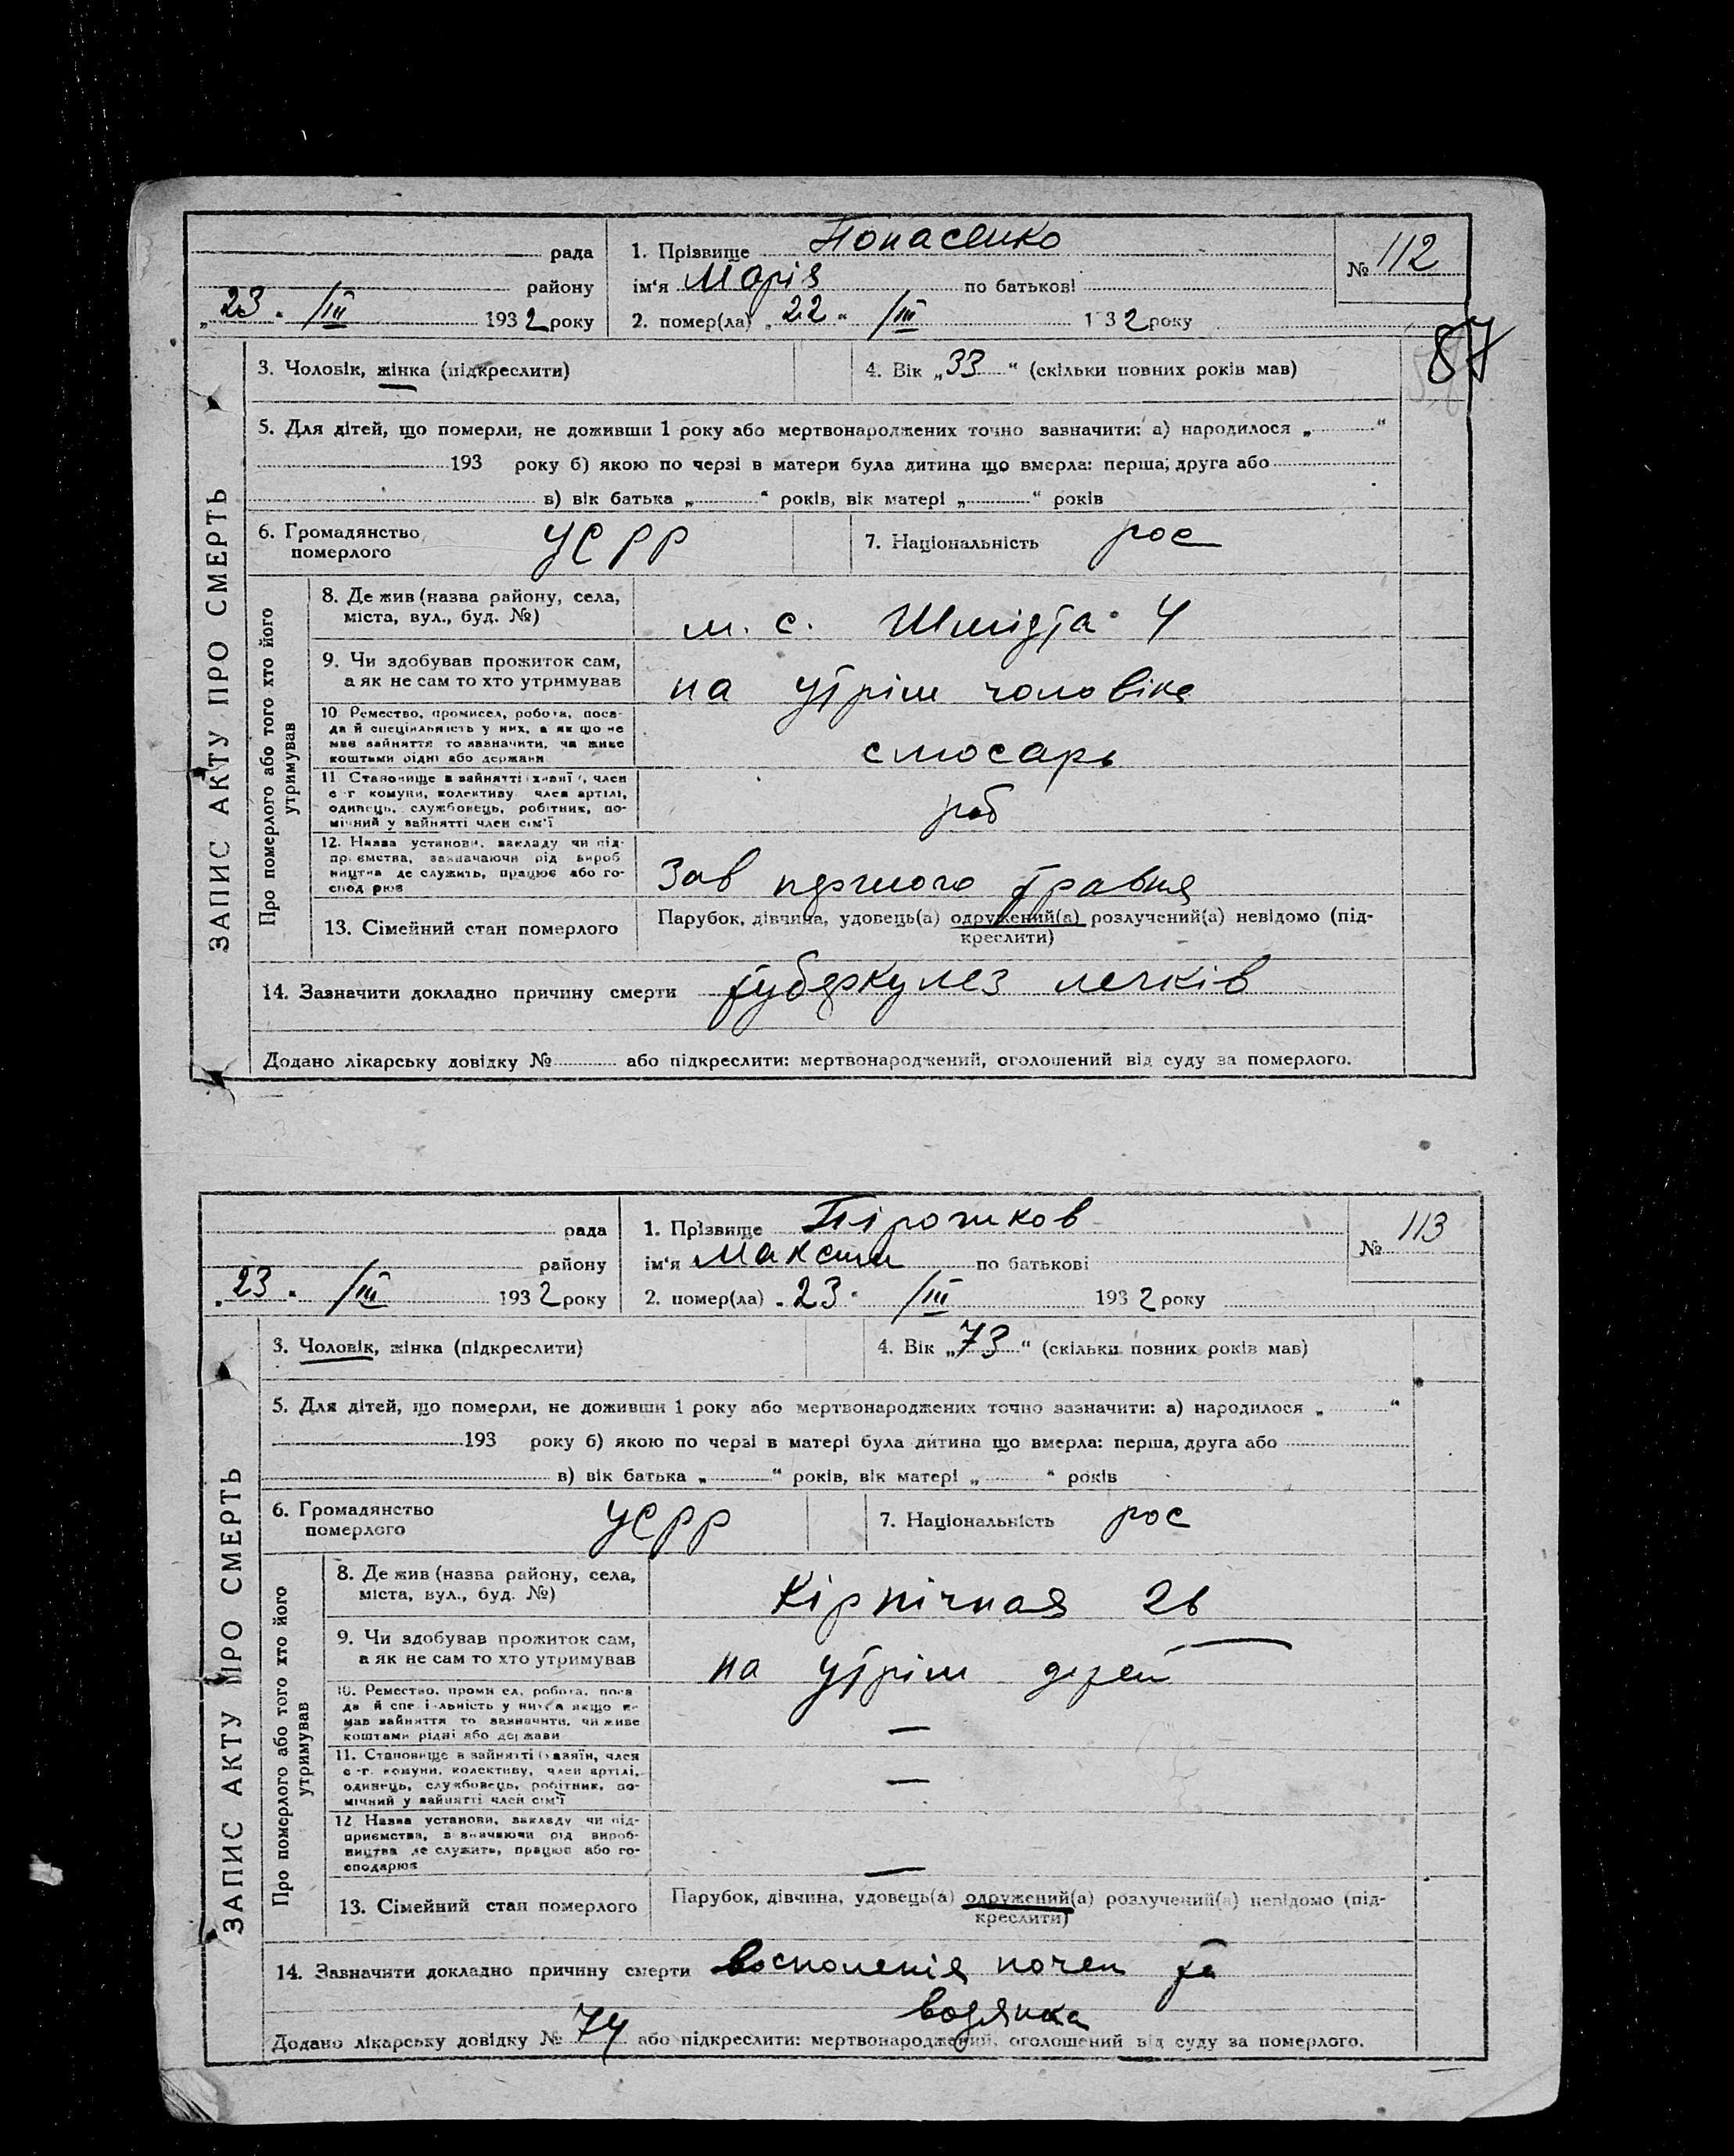 рада
1. Прізвище Попасенко
№ 112
району
ім'я Марія по батькові
„23." /III 1932 року
2. помер(ла) „22" /III 1932 року
87
3. Чоловік, жінка (підкреслити)
4. Вік „33" (скільки повних років мав)
5. Для дітей, що померли, не доживши 1 року або мертвонароджених точно зазначити: а) народилося „ "
193 року б) якою по черзі в матери була дитина що вмерла: перша, друга або
в) вік батька „ " років, вік матері „ " років
6. Громадянство померлого УСРР
7. Національність рос
ЗАПИС АКТУ ПРО СМЕРТЬ
Про померлого або того хто його утримував
8. Де жив (назва району, села,
міста, вул., буд. №)
м. с. Шмідта 4
9. Чи здобував прожиток сам,
а як не сам то хто утримував
на утрім чоловіка
10. Ремество, промисел, робота, поса-
да й спеціяльність у них, а як що не
має зайняття то зазначити, чи живе
коштами рідні або держави
слюсарь
11. Становище в зайнятті (хазяї), член
с.-г. комуни, колективу, член артілі,
одинець, службовець, робітник, по-
мічний у зайнятті член сім'ї
роб
12. Назва установи, закладу чи під-
приємства, зазначаючи рід вироб
ництва де служить, працює або го-
сподарює
Зав першого травня
13. Сімейний стан померлого
Парубок, дівчина, удовець(а) одружений(а) розлучений(а) невідомо (під-
креслити)
14. Зазначити докладно причину смерти туберкулез легків
Додано лікарську довідку № або підкреслити: мертвонароджений, оголошений від суду за померлого.
рада
1. Прізвище Пірожков
№ 113
району
ім'я Максим по батькові
„23." /III 1932 року
2. помер(ла) „23" /III 1932 року
3. Чоловік, жінка (підкреслити)
4. Вік „73" (скільки повних років мав)
5. Для дітей, що померли, не доживши 1 року або мертвонароджених точно зазначити: а) народилося „ "
193 року б) якою по черзі в матері була дитина що вмерла: перша, друга або
в) вік батька „ " років, вік матері „ " років
6. Громадянство померлого УСРР
7. Національність рос
ЗАПИС АКТУ ПРО СМЕРТЬ
Про померлого або того хто його утримував
8. Де жив (назва району, села,
міста, вул., буд. №)
Кірпічная 26
9. Чи здобував прожиток сам,
а як не сам то хто утримував
на утрім дітей
10. Ремество, промисел, робота, поса-
да й спеціяльність у них, а якщо не
мав зайняття то зазначити, чи живе
коштами рідні або держави
—
11. Становище в зайнятті (хазяїн, член
с.-г. комуни, колективу, член артілі,
одинець, службовець, робітник, по-
мічний у зайнятті член сім'ї
—
12. Назва установи, закладу чи під-
приємства, зазначаючи рід вироб-
ництва де служить, працює або го-
сподарює
—
13. Сімейний стан померлого
Парубок, дівчина, удовець(а) одружений(а) розлучений(а) невідомо (під-
креслити)
14. Зазначити докладно причину смерти восполенія почек та
водянка
Додано лікарську довідку № 74 або підкреслити: мертвонароджений, оголошений від суду за померлого.